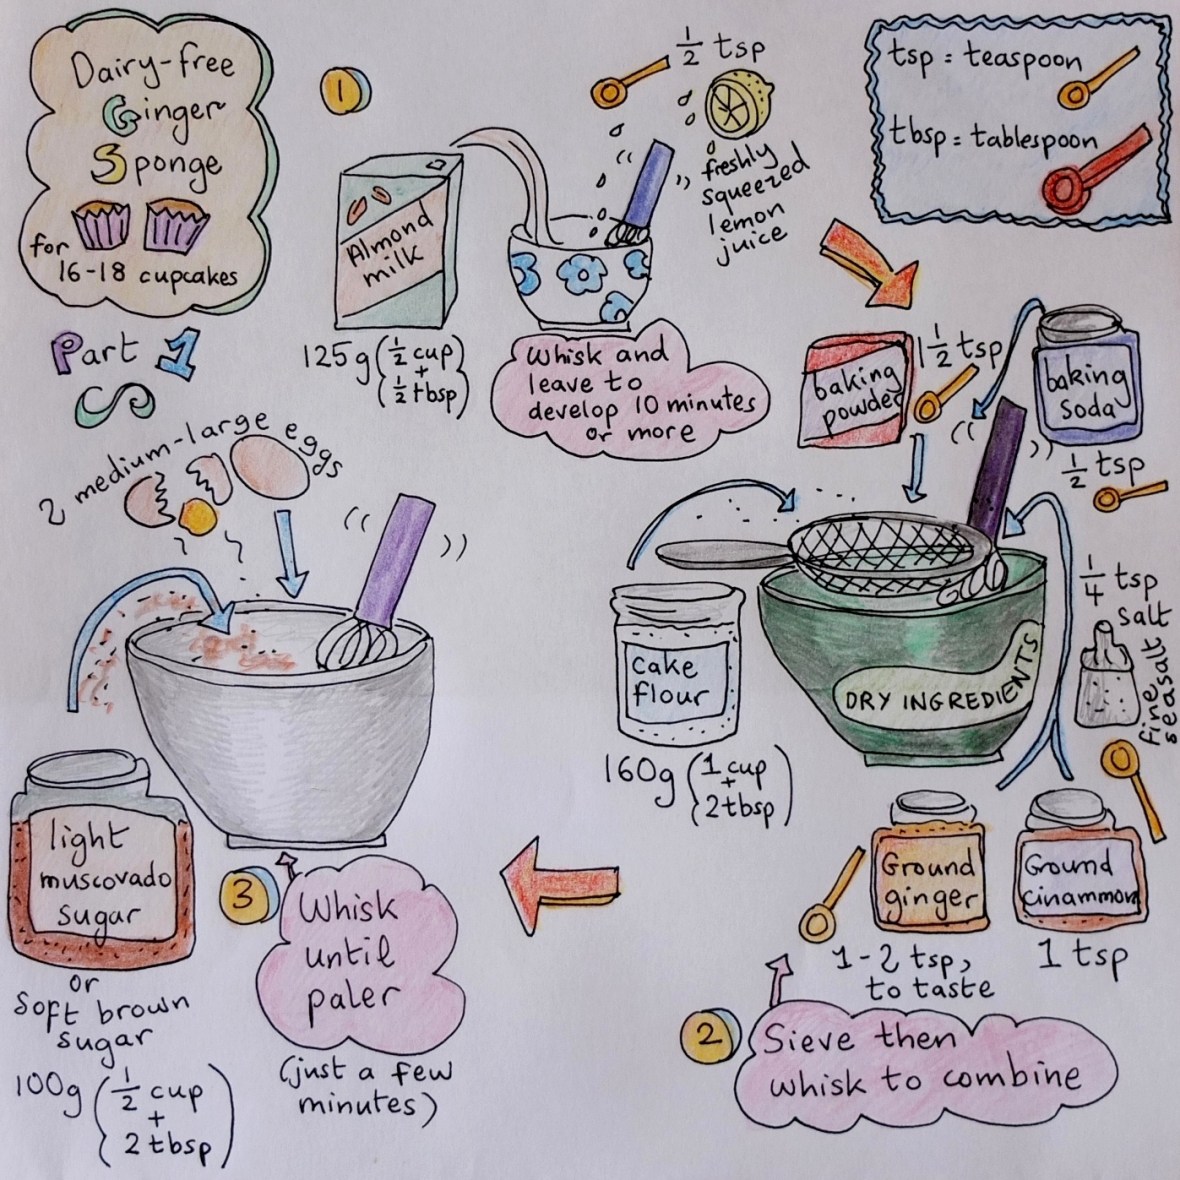 Dairy-free
Ginger
Sponge
for
16-18 cupcakes
Part 1
1
1/2 tsp
freshly
squeezed
lemon
juice
Almond
milk
125g (1/2 cup
+
1/2 tbsp)
Whisk and
leave to
develop 10 minutes
or more
tsp = teaspoon
tbsp = tablespoon
baking
powder
1 1/2 tsp
baking
soda
1/2 tsp
1/4 tsp
salt
fine
seasalt
cake
flour
160g (1 cup
+
2 tbsp)
DRY INGREDIENTS
Ground
ginger
1-2 tsp,
to taste
Ground
cinammon
1 tsp
2
Sieve then
whisk to combine
2 medium-large eggs
light
muscovado
sugar
or
soft brown
sugar
100g (1/2 cup
+
2 tbsp)
3
Whisk
until
paler
(just a few
minutes)